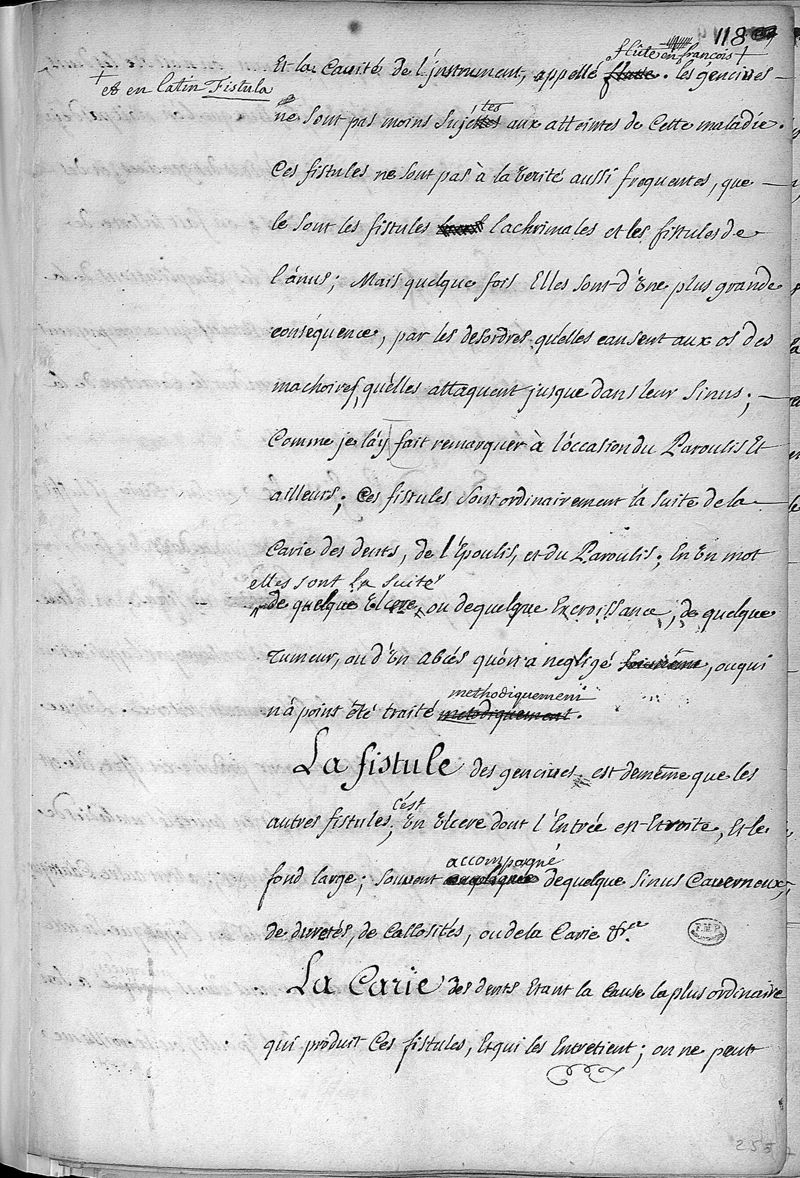 118
flûte en françois +
Et la Cavité de l'instrument, appellé . les gencives
+ et en latin Fistula
ne sont pas moins sujettes aux atteintes de Cette maladie.
Ces fistules ne sont pas à la vérité aussi frequentes, que
le sont les fistules lachrimales et les fistules de
l'ânus; Mais quelque fois Elles sont d'Une plus grande
conséquence, par les desordres qu'elles causent aux os des
machoires, qu'elles attaquent jusque dans leur sinus;
Comme je l'ay fait remarquer à l'occasion du Paroulis Et
ailleurs; Ces fistules sont ordinairement la suite de la
Carie des dents, de l'Epoulis, et du Paroulis; En Un mot
elles sont la suite
de quelque Ulcere, ou de quelque Excroissance, de quelque
Tumeur, ou d'Un abcés qu'on a negligé , ou qui
methodiquement
n'a point été traité metodiquement.
La fistule des gencives est de même que les
c'est
autres fistules, Un Ulcere dont l'Entrée est Etroite, Et le
accompagné
fond large; souvent de quelque sinus Caverneux,
de duretés, de Callosités, ou de la Carie &c.
F.M.P.
La Carie des dents Etant la cause la plus ordinaire
qui produit Ces fistules, Et qui les Entretient; on ne peut
255